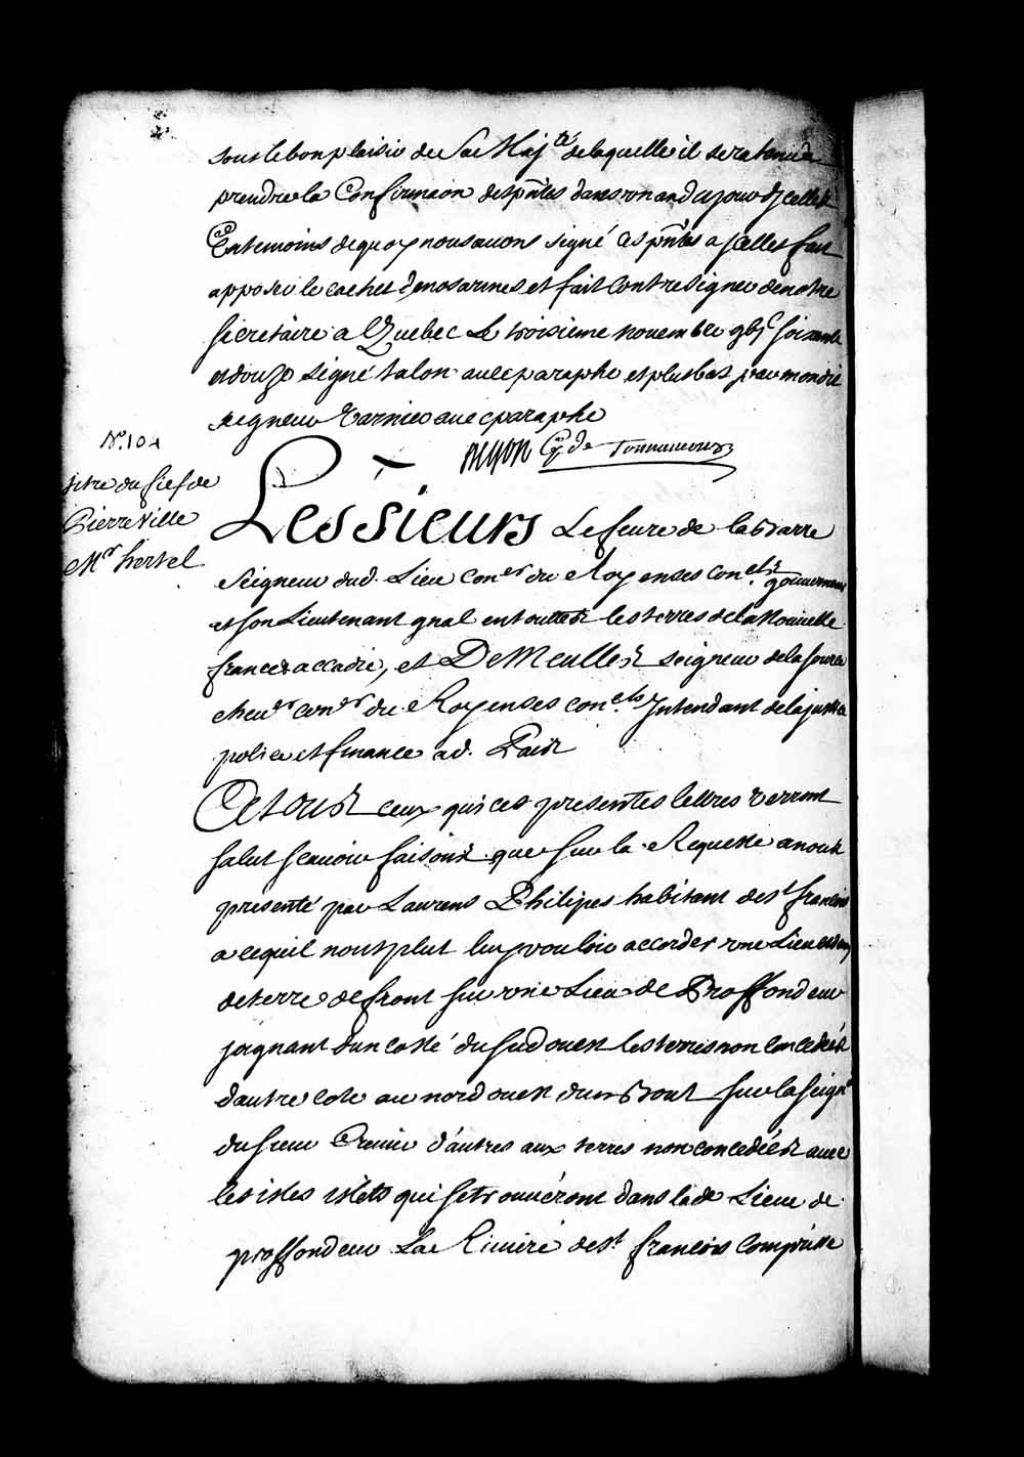 sous le bon plaisir de Sa Maj.té de laquelle il sera tenu de
prendre la Confirmaon des pntes dans un an du jour d'jcelles
En temoins de quoy nous avons signé ces pntes a jcelles fait
apposer le cachet de nos armes et fait Contresigner de notre
secretaire a Quebec le troisieme novembre gbjc soixante
et douze signé talon avec paraphe et plus bas par mondit
seigneur Varnier avec paraphe
Begon Cg. de Tonnancour
N.º 101
titre du fief de
Pierreville
Mr hertel
Les Sieurs Lefeure de la barre
Seigneur dud. Lieu Coner du Roy en ses Conels gouverneur
et son Lieutenant gnal en touttes les terres de la Nouvelle
france et accadie, et DeMeulles seigneur de la source
cheuer coner du Roy en ses conels Intendant de la justice
police et finance aud. Païs
A tous ceux qui ces presentes lettres verront
salut scauoir faisons que sur la Requeste a nous
presenté par Laurens Philipes habitant de st francois
a ce quil nous plut luy vouloir accorder une Lieue et demy
de terre de front sur une Lieu de Proffondeur
joignant dun costé du sud ouest les terres non Concedées
dautre coté au nord ouest dun bout sur la seigrie
du sieur Crevier d'autres aux terres non concediés avec
les isles islets qui se trouuéront dans lade Lieue de
proffondeur La Riuiére de st. francois Comprisse